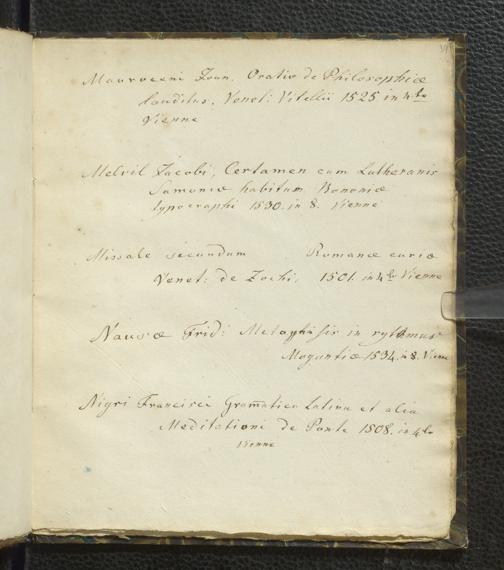 Mauroceni Joan. Oratio de Philosophiæ
lauditus, Venet: Vitellii 1525 in 4to
Vienne
Melvil Jacobi, Certamen cum Lutheranis
Samoniæ habitum Bononiæ
typographi 1530. in 8. Vienne
Missale secundum Romanæ curiæ
Venet: de Zochi, 1501. in 4to Vienne
Nauseæ Frid: in rythmus
Moguntiæ 1534. in 8. Vienne
Nigri Francisci Gramatica Latina et alia
Meditationi de Ponte 1508. in 4to
Vienne